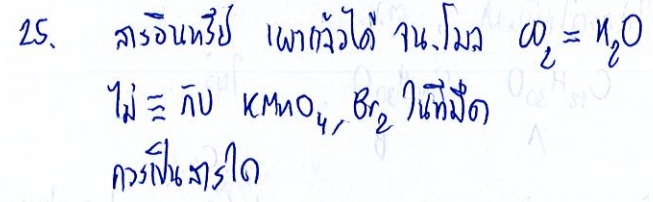 25. สารอินทรีย์ เผาแล้วได้ จน.โมล CO₂ = H₂O
ไม่ ≡ กับ KMnO₄, Br₂ ในที่มืด
ควรเป็นสารใด